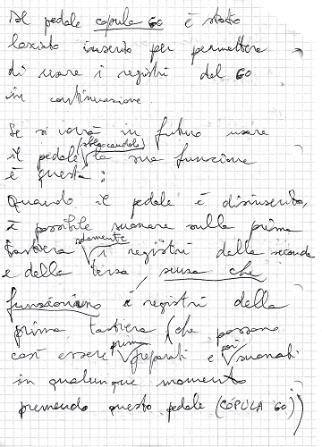 Il pedale copula GO è stato
lasciato inserito per permettere
di usare i registri del GO
in continuazione.
Se si vorrà in futuro usare
il pedale (sbloccandolo) la sua funzione
è questa:
Quando il pedale è disinserito,
è possibile suonare sulla prima
tastiera solamente i registri della seconda
e della terza, senza che
funzionino i registri della
prima tastiera (che possono
così essere prima preparati e poi suonati
in qualunque momento
premendo questo pedale (COPULA GO))